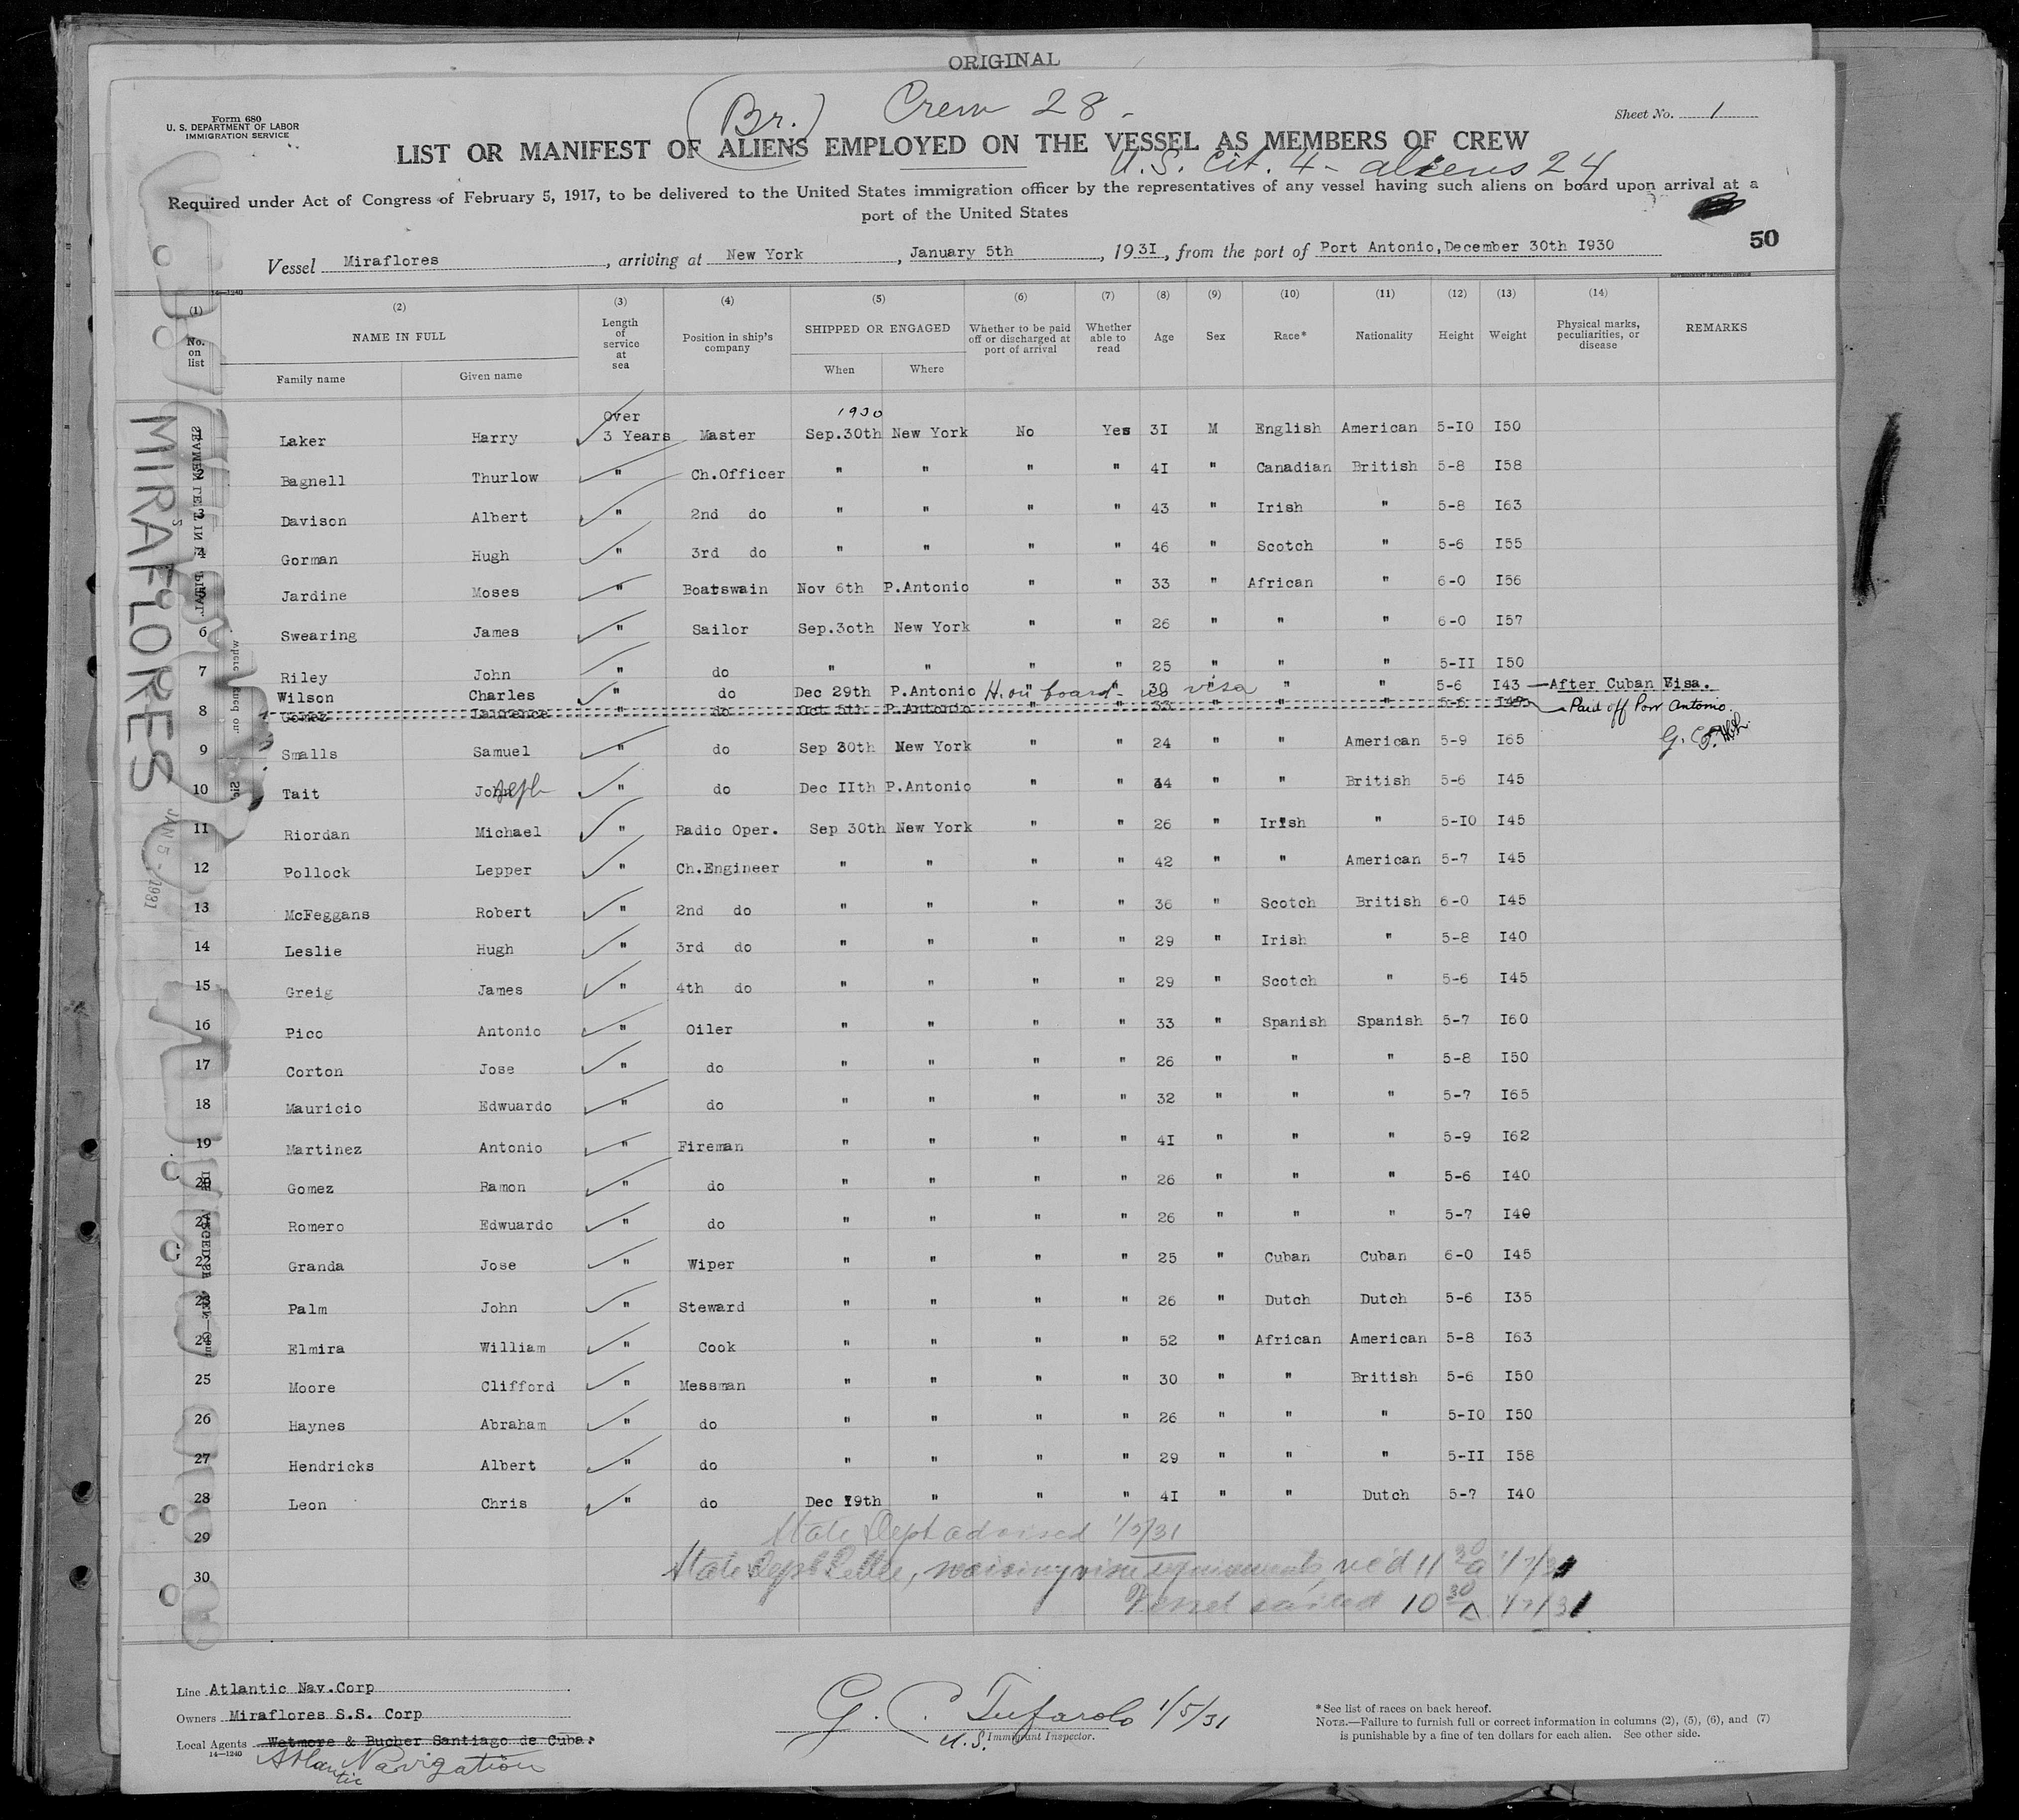 ORIGINAL
(Br.) Crew 28 -
Form 680
U. S. DEPARTMENT OF LABOR
IMMIGRATION SERVICE
Sheet No. 1
LIST OR MANIFEST OF ALIENS EMPLOYED ON THE VESSEL AS MEMBERS OF CREW
U.S. Cit. 4 - aliens 24
Required under Act of Congress of February 5, 1917, to be delivered to the United States immigration officer by the representatives of any vessel having such aliens on board upon arrival at a
port of the United States
50
Vessel Miraflores, arriving at New York, January 5th, 1931, from the port of Port Antonio, December 30th I930
14—1240
GOVERNMENT PRINTING OFFICE
(1) No. on list
(2) NAME IN FULL Family name Given name
(3) Length of service at sea
(4) Position in ship's company
(5) SHIPPED OR ENGAGED When Where
(6) Whether to be paid off or discharged at port of arrival
(7) Whether able to read
(8) Age
(9) Sex
(10) Race*
(11) Nationality
(12) Height
(13) Weight
(14) Physical marks, peculiarities, or disease
REMARKS
Over 1930
Laker Harry 3 Years Master Sep.30th New York No Yes 3I M English American 5-I0 I50
Bagnell Thurlow " Ch.Officer " " " " 4I " Canadian British 5-8 I58
3 Davison Albert " 2nd do " " " " 43 " Irish " 5-8 I63
4 Gorman Hugh " 3rd do " " " " 46 " Scotch " 5-6 I55
Jardine Moses " Boatswain Nov 6th P.Antonio " " 33 " African " 6-0 I56
6 Swearing James " Sailor Sep.3oth New York " " 26 " " " 6-0 I57
7 Riley John " do " " " " 25 " " " 5-II I50
Wilson Charles " do Dec 29th P.Antonio H. on board - no visa " 30 " " " 5-6 I43 —After Cuban Visa.
8 Gomez Laurence " do Oct 5th P.Antonio " " 33 " " " 5-6 I49 Paid off Port Antonio.
G. C. T.
9 Smalls Samuel " do Sep 30th New York " " 24 " " American 5-9 I65
10 Tait John Joseph " do Dec IIth P.Antonio " " 44 " " British 5-6 I45
11 Riordan Michael " Radio Oper. Sep 30th New York " " 26 " Irish " 5-I0 I45
12 Pollock Lepper " Ch.Engineer " " " " 42 " " American 5-7 I45
13 McFeggans Robert " 2nd do " " " " 36 " Scotch British 6-0 I45
14 Leslie Hugh " 3rd do " " " " 29 " Irish " 5-8 I40
15 Greig James " 4th do " " " " 29 " Scotch " 5-6 I45
16 Pico Antonio " Oiler " " " " 33 " Spanish Spanish 5-7 I60
17 Corton Jose " do " " " " 26 " " " 5-8 I50
18 Mauricio Edwuardo " do " " " " 32 " " " 5-7 I65
19 Martinez Antonio " Fireman " " " " 4I " " " 5-9 I62
20 Gomez Ramon " do " " " " 26 " " " 5-6 I40
21 Romero Edwuardo " do " " " " 26 " " " 5-7 I40
22 Granda Jose " Wiper " " " " 25 " Cuban Cuban 6-0 I45
23 Palm John " Steward " " " " 26 " Dutch Dutch 5-6 I35
24 Elmira William " Cook " " " " 52 " African American 5-8 I63
25 Moore Clifford " Messman " " " " 30 " " British 5-6 I50
26 Haynes Abraham " do " " " " 26 " " " 5-I0 I50
27 Hendricks Albert " do " " " " 29 " " " 5-II I58
28 Leon Chris " do Dec 19th " " " 4I " " Dutch 5-7 I40
29 State Dept advised 1/5/31
30 State Dept Letter, waiving visa requirements, rec'd 11 30 a 1/7/31
Vessel sailed 10 30 A 1/7/31
MIRAFLORES
JAN 5 - 1931
Line Atlantic Nav.Corp
Owners Miraflores S.S. Corp
Local Agents Wetmore & Bucher Santiago de Cuba.
14—1240
Atlantic Navigation
G. C. Tufarolo 1/5/31
U.S. Immigrant Inspector.
*See list of races on back hereof.
NOTE.—Failure to furnish full or correct information in columns (2), (5), (6), and (7)
is punishable by a fine of ten dollars for each alien. See other side.